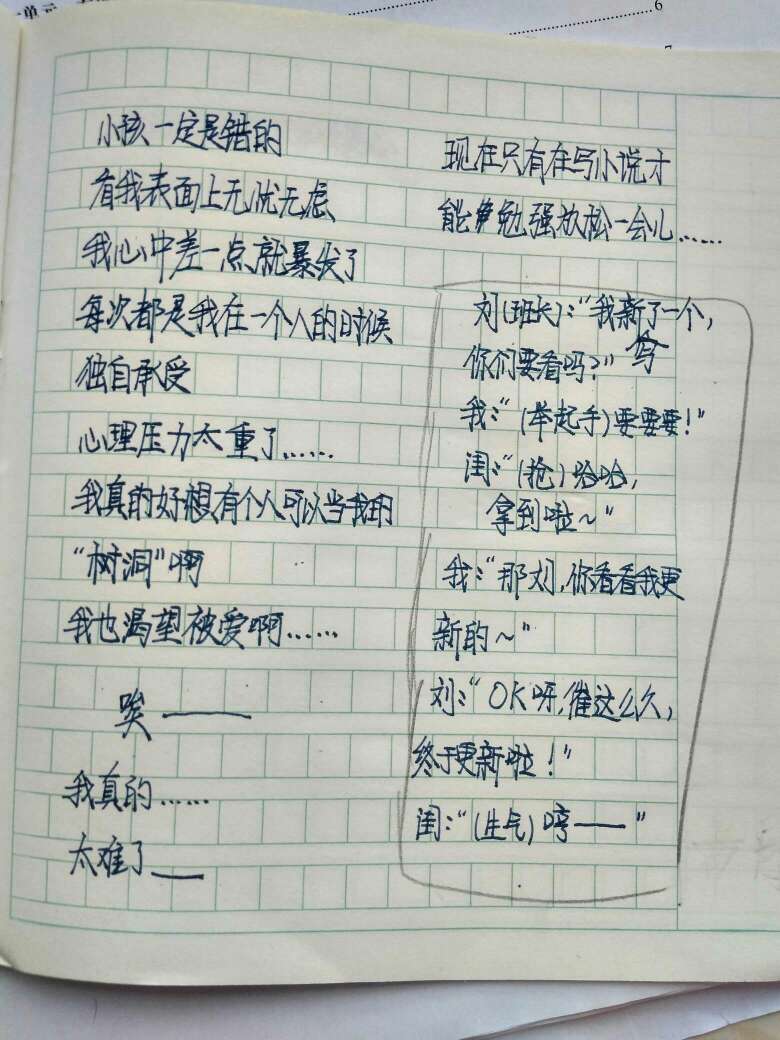 小孩一定是错的
看我表面上无忧无虑
我心中差一点就暴发了
每次都是我在一个人的时候
独自承受
心理压力太重了……
我真的好想有个人可以当我的
“树洞”啊
我也渴望被爱啊……
唉——
我真的……
太难了——
现在只有在写小说才
能勉强放松一会儿……
刘(班长):“我新写了一个,
你们要看吗?”
我:“(举起手)要要要!”
闺:“(抢)哈哈,
拿到啦~”
我:“那刘,你看看我更
新的~”
刘:“OK呀,催这么久,
终于更新啦!”
闺:“(生气)哼——”